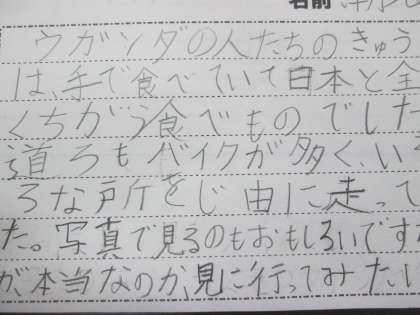 名前
ウガンダの人たちのきゅう
は、手で食べていて日本と全
くちがう食べものでした
道ろもバイクが多く、い
ろな所をじ由に走って
た。写真で見るのもおもしろいです
が、本当なのか、見に行ってみたい